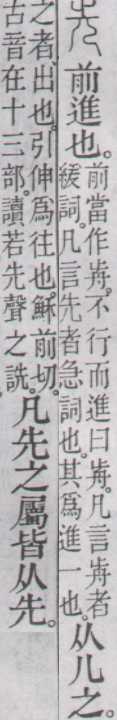 先前進也。
前當作歬。不行而進曰歬。凡言歬者
緩詞。凡言先者急詞也。其爲進一也。
从儿之。
之者、出也。引伸爲往也。穌前切。
古音在十三部。讀若先聲之詵。
凡先之屬皆从先。